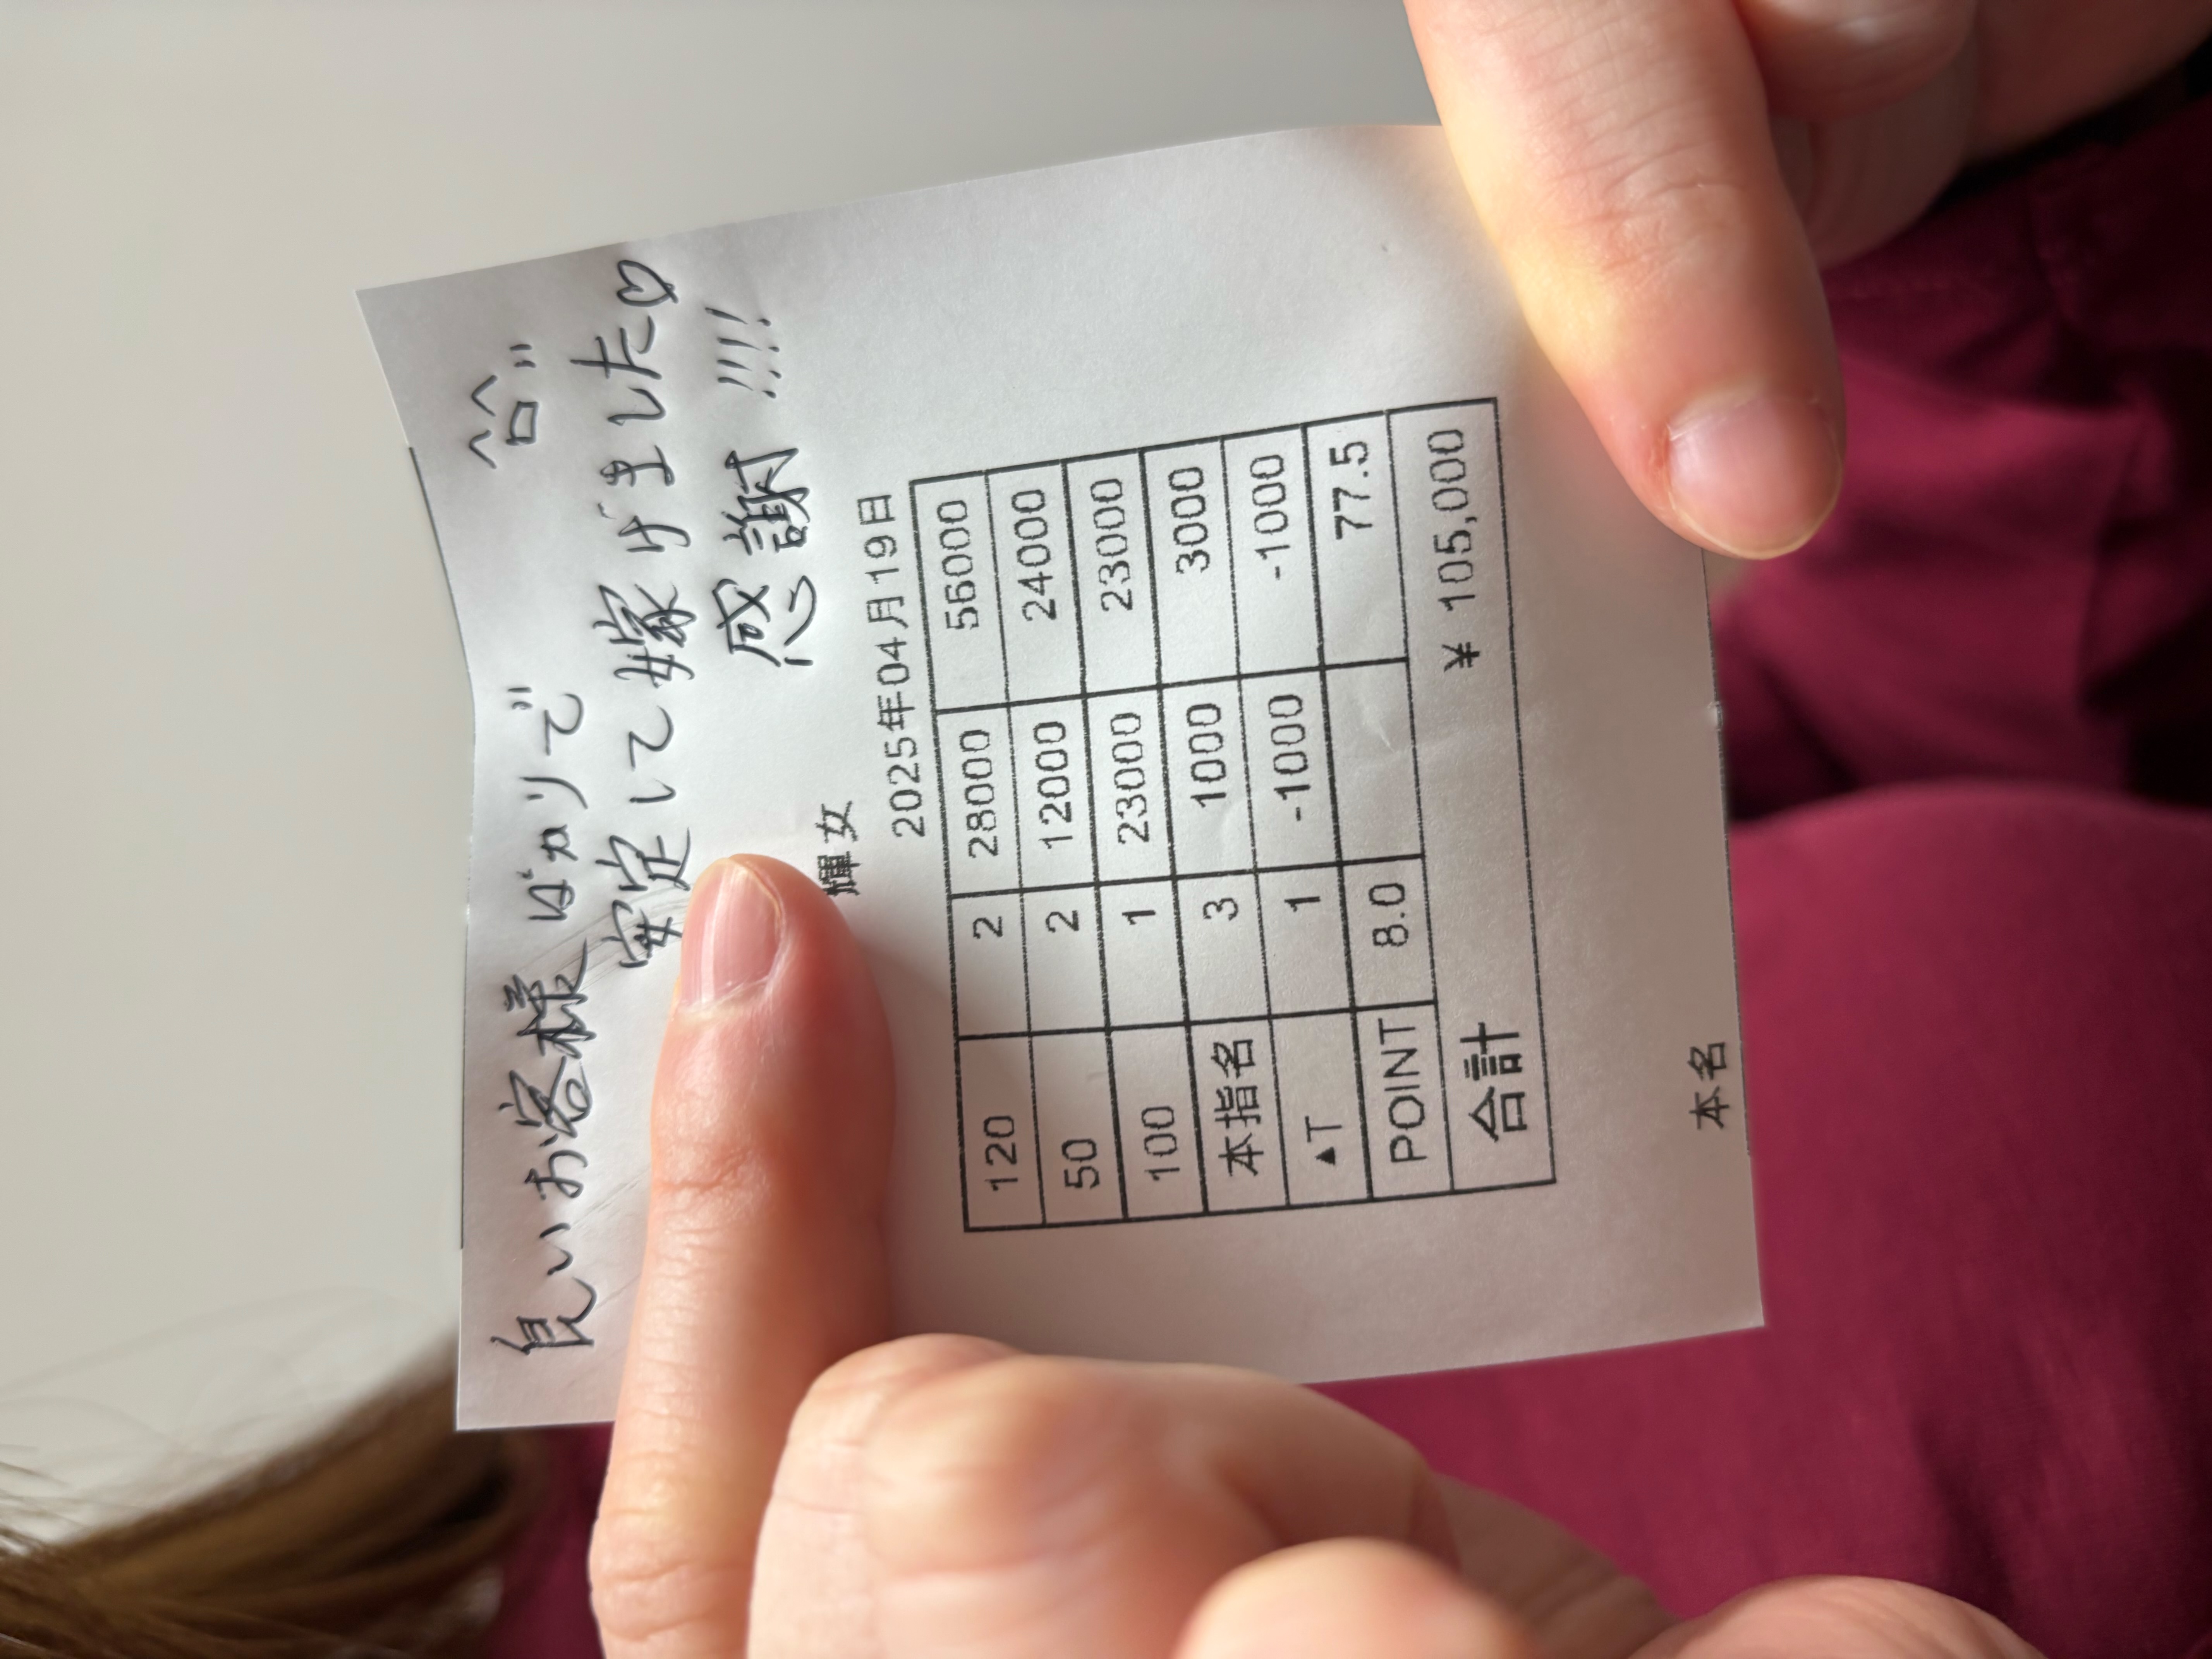 良いお客様ばかりで
安定して嫁げました♡
感謝!!!!
輝女
2025年04月19日
120 2 28000 56000
50 2 12000 24000
100 1 23000 23000
本指名 3 1000 3000
▲T 1 -1000 -1000
POINT 8.0 77.5
合計 ¥ 105,000
本名